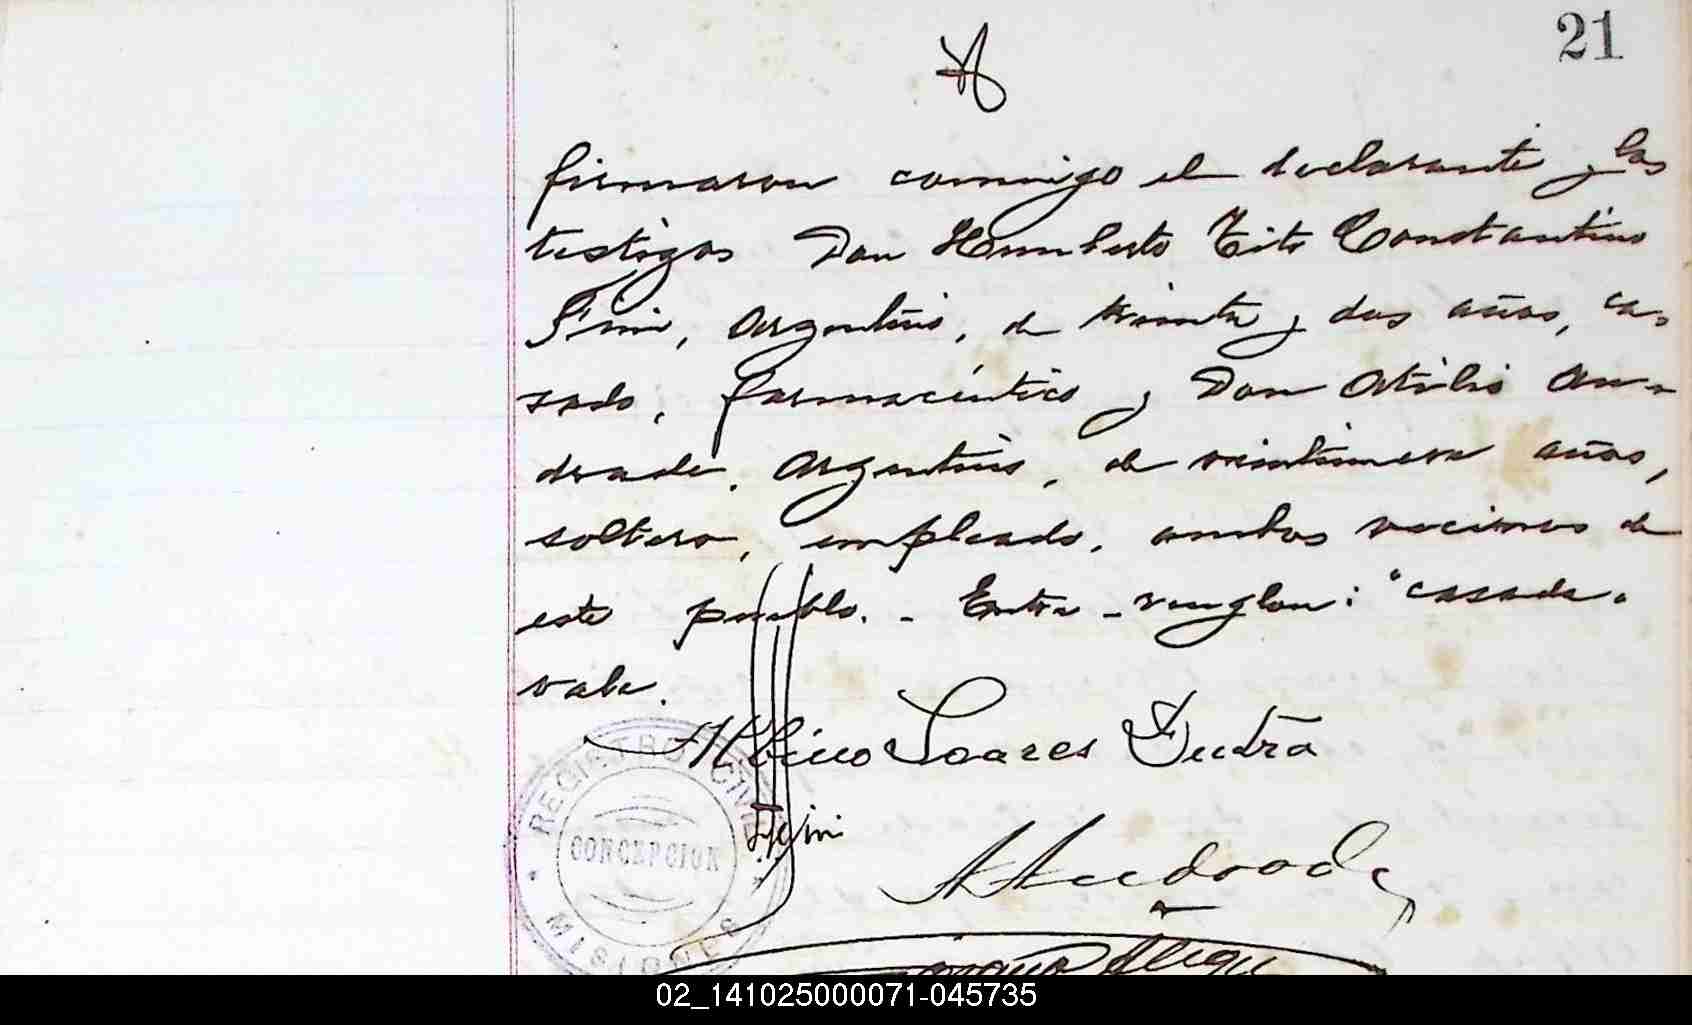 21
firmaron conmigo el declarante y los
testigos Don Humberto Tito Constantino
Fini, Argentino, de treinta y dos años, ca-
sado, farmacéutico y Don Atilio An-
drade, Argentino, de veintinueve años,
soltero, empleado, ambos vecinos de
este pueblo. - Entre-renglon: "casada"
vale.
Albino Soares Dutra
Fini
A Andrade
REGISTRO CIVIL
CONCEPCION
MISIONES
02_141025000071-045735